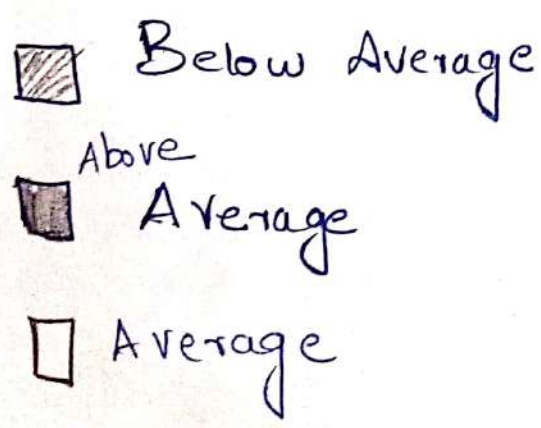 Below Average
Above
Average
Average